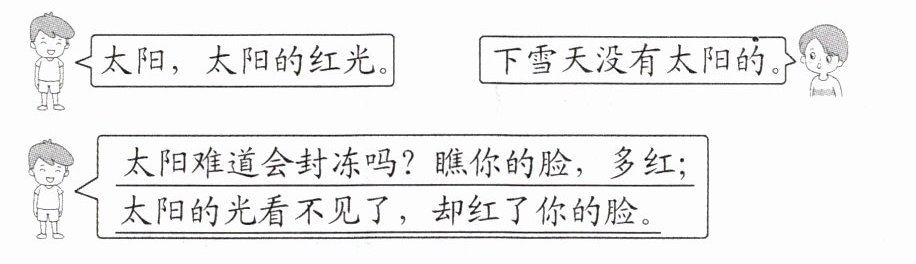 太阳，太阳的红光。
下雪天没有太阳的。
太阳难道会封冻吗？瞧你的脸，多红；
太阳的光看不见了，却红了你的脸。